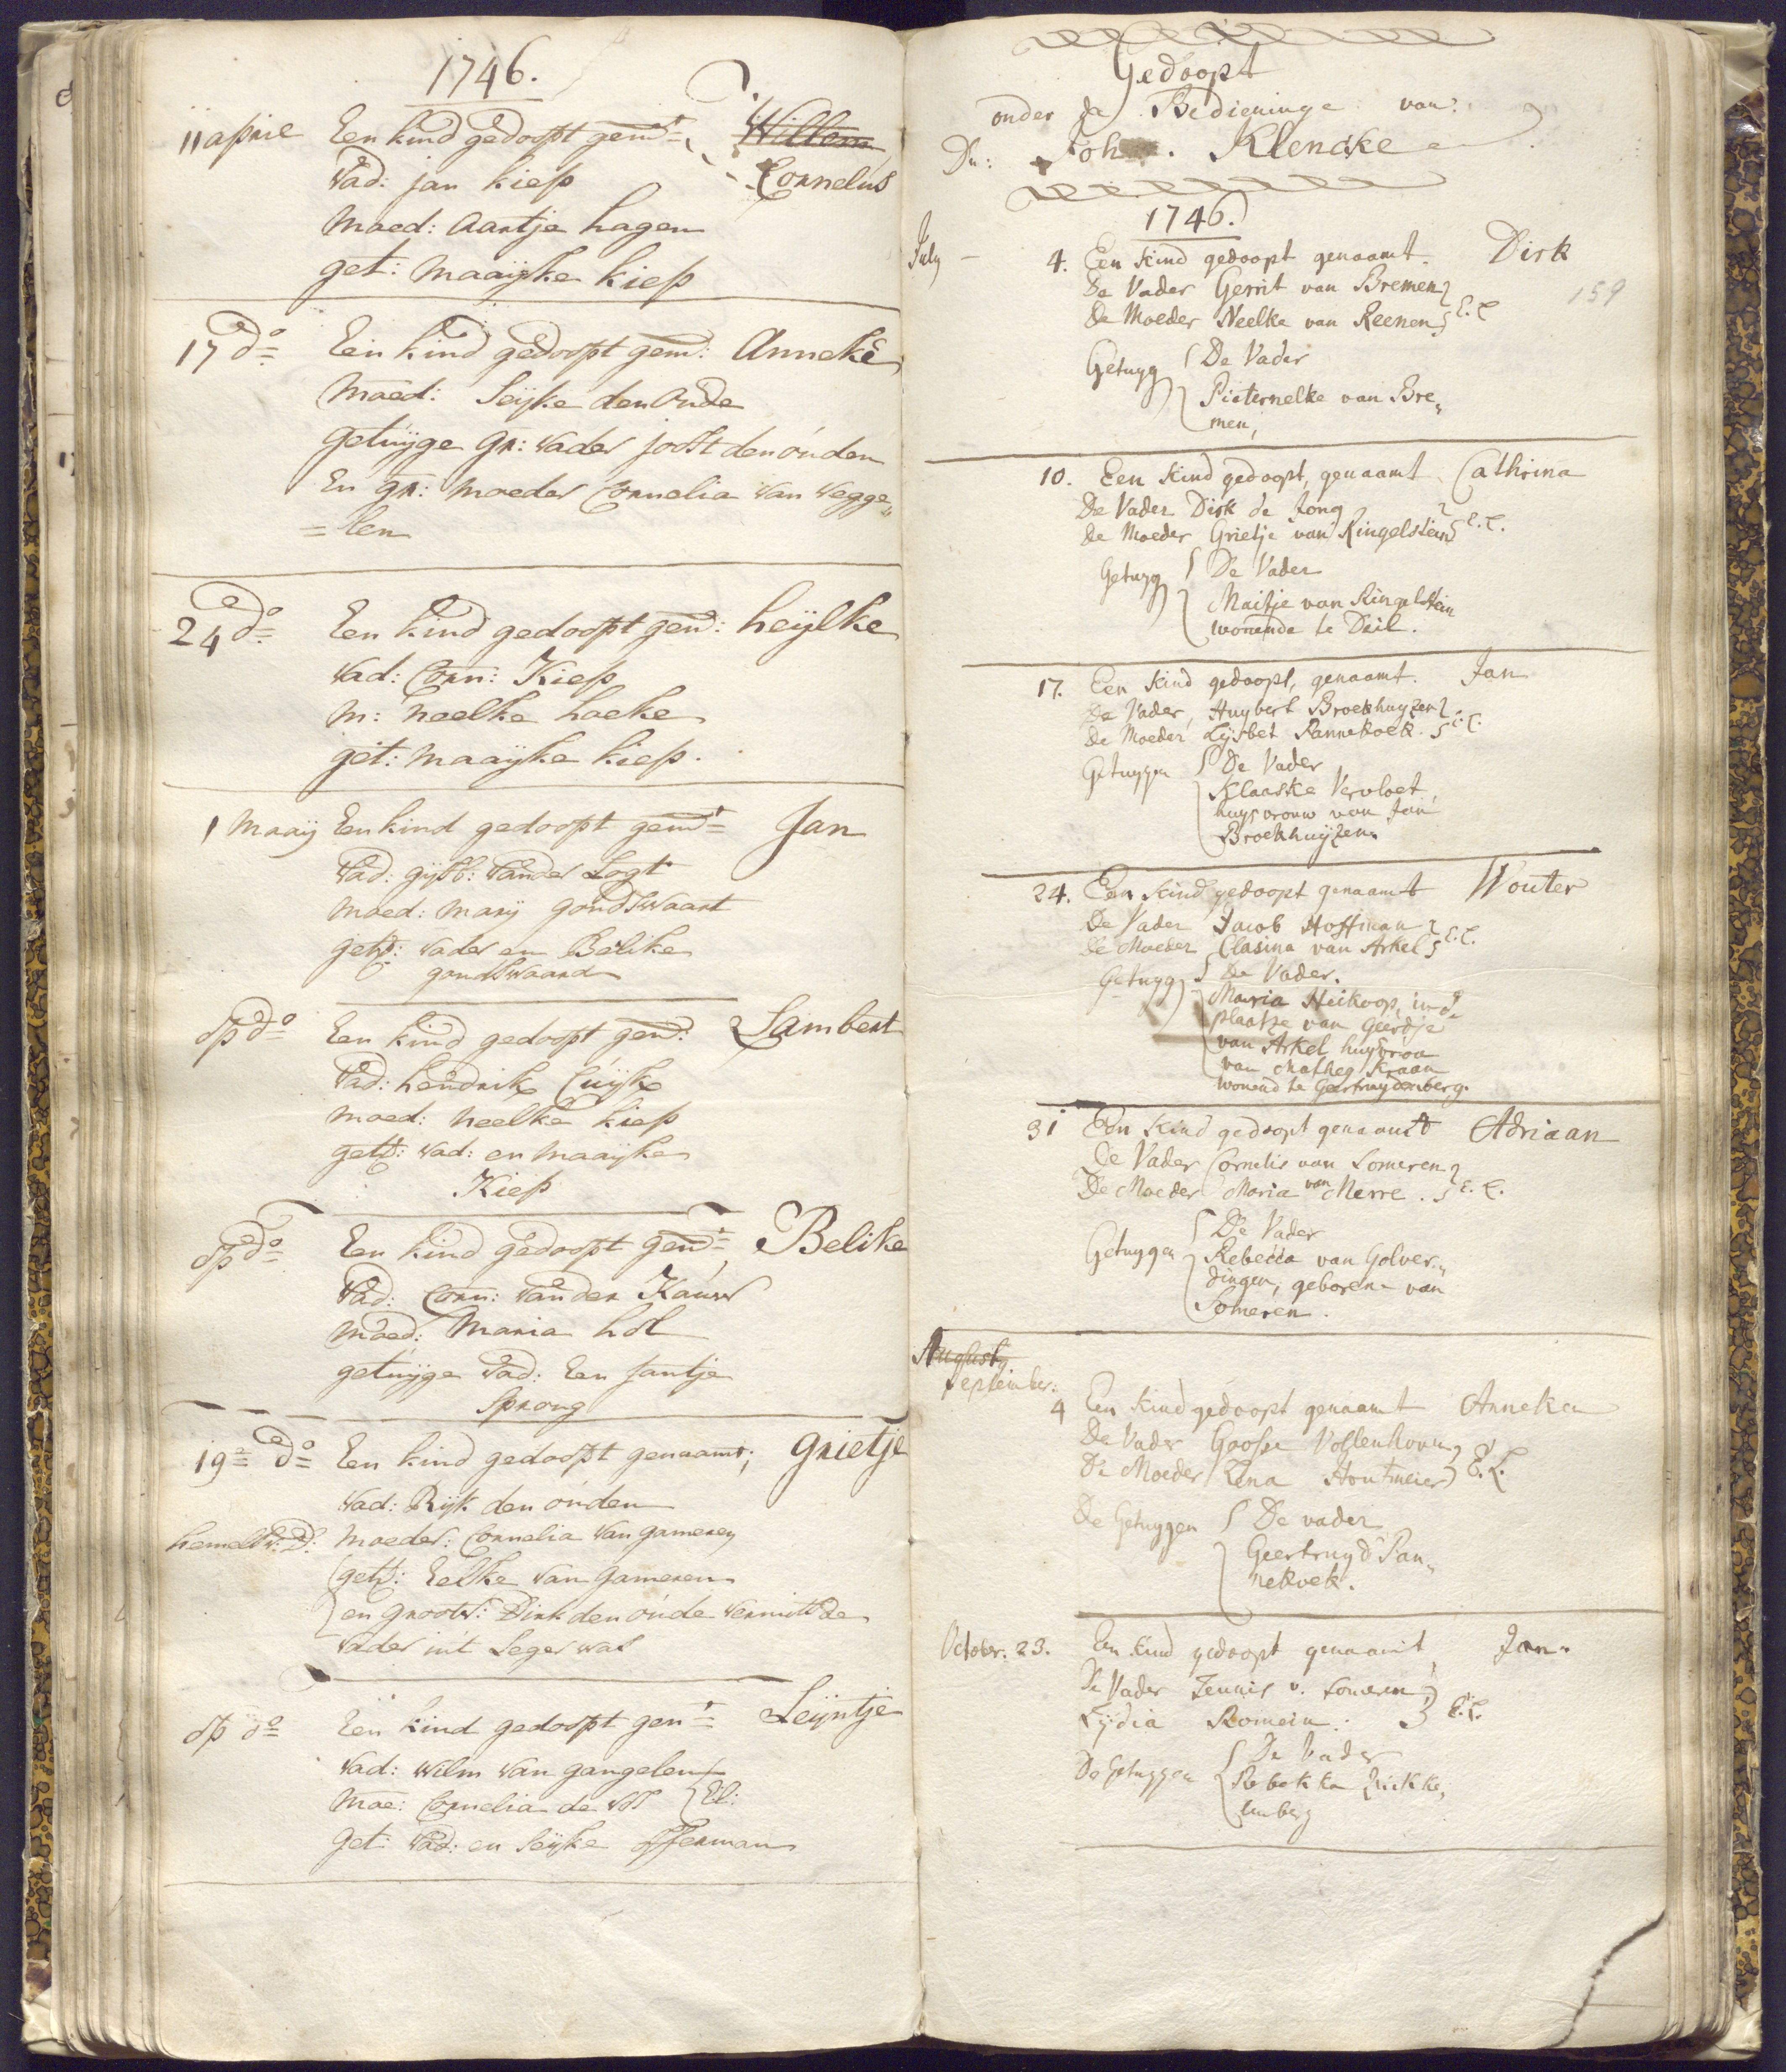 1746.
11 aprie Een kind gedoopt gend=t Willem
Vad: jan kiep Cornelus
Moed: Aartje hagen
get: Maaijke kiep
17 do Een kind gedoopt gem: Anneke
Moed: Seijke den Oude
getuijge gr: Vader joost den ouden
En gr: moeder Cornelia van Wegge„
=len
24 do Een kind gedoopt gend: heijlke
Vad: Corn: Kiep
M: Neelke hoeke
get: Maaijke kiep.
1 Maaij Een kind gedoopt gend=t Jan
Vad: gijsb: Vander Logt
Moed: Marij goudswaart
get: Vader en Belike
goudswaard
op do Een kind gedoopt gend: Lambert
Vad: hendrik Cuijk
Moed: Neelke kiep
get: Vad: en Maaijke
Kiep
op do Een kind gedoopt gend=t Belike
Vad: Corn: Vanden Kauw
Moed: Maria hol
getuijge Vad: Een Jantje
Sprong
19= do Een kind gedoopt genaamt; Grietje
Vad: Rijk den ouden
hemelv: D: Moeder: Cornelia Van gameren
get: Eelke Van gameren
en grootv: Dirk den oude vermitsde
Vader int Leger was
op do Een kind gedoopt gen=t Leijntje
Vad: Wilm Van gangelen
Moe: Cornelia de Vos El:
get: Vad: en Seijke offerman
Gedoopt
onder de Bedieninge van
Dn: Joh . Klencke
1746.
July - 4. Een kind gedoopt genaamt. Dirk
De Vader Gerrit van Bremen 159
De Moeder Neelke van Reenen E. L
Getuyg De Vader
Pieternelke van Bre„
men,
10. Een kind gedoopt, genaamt Cathrina
De Vader Dirk de Jong
De Moeder Grietje van Ringelstein E. L.
Getuyg De Vader
Maitje van Ringelstein
wonende te Deil.
17. Een kind gedoopt, genaamt. Jan
De Vader, Huybert Broekhuyzen
De Moeder Lijsbet Pannekoek. E. L.
Getuygen De Vader
Klaaske Vervloet,
huysvrouw van Jan
Broekhuijzen.
24. Een kind gedoopt genaamt Wouter
De Vader Jacob Hoffman
De Moeder Clasina van Arkel E. L.
Getuyg De Vader.
Maria Heikoop, in d
plaatze van Geertje
van Arkel huysvrou
van Matheg Kraan
wonend te Geertruydenberg.
31 Een kind gedoopt genaamt Adriaan
De Vader Cornelis van Someren
De Moeder Maria van Merre. E. L.
Getuygen De Vader
Rebecca van Golver„
dingen, geboren van
Someren.
Augusty
September:
4 Een kind gedoopt genaamt Anneka
De Vader Goose Vossenhoven
De Moeder Lena Houtmeier E. L.
De Getuygen De vader
Geertruyd Pan„
nekoek.
October. 23. Een kind gedoopt genaamt, Jan.
De Vader Teunis v. Someren,
Lydia Romein. E. L.
De Getuygen De Vader
Rebekka Quekke„
lenberg